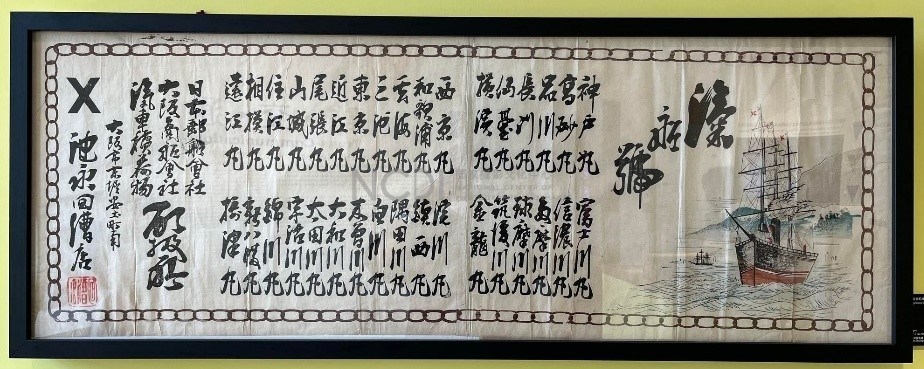 永
號
神戸丸
高砂丸
長門丸
仙臺丸
横濱丸
富士川丸
信濃川丸
球摩川丸
筑後川丸
金龍丸
西京丸
和歌浦丸
三池丸
東京丸
近江丸
尾張丸
山城丸
住江丸
相模丸
遠江丸
淀川丸
鎮西丸
隅田川丸
白川丸
木曽川丸
大和川丸
太田川丸
宇治川丸
錦川丸
攝津丸
日本郵船會社
大阪商船會社
荷物
取扱所
大阪市
安土町角
X 池永回漕店